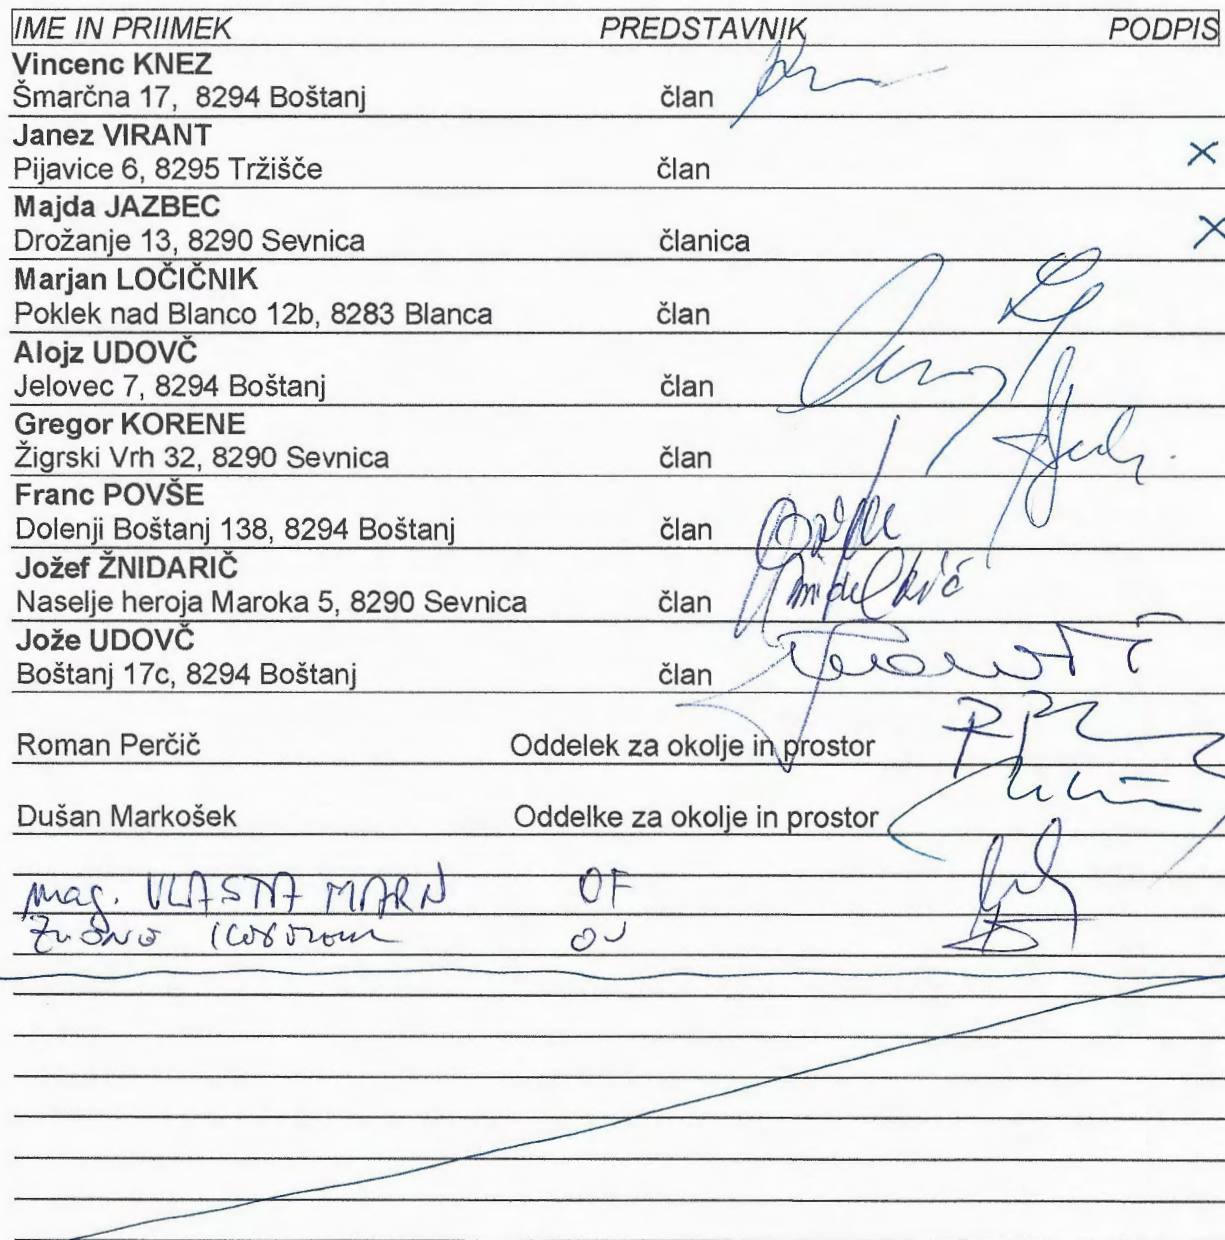 IME IN PRIIMEK PREDSTAVNIK PODPIS
Vincenc KNEZ
Šmarčna 17, 8294 Boštanj član
Janez VIRANT
Pijavice 6, 8295 Tržišče član X
Majda JAZBEC
Drožanje 13, 8290 Sevnica članica X
Marjan LOČIČNIK
Poklek nad Blanco 12b, 8283 Blanca član
Alojz UDOVČ
Jelovec 7, 8294 Boštanj član
Gregor KORENE
Žigrski Vrh 32, 8290 Sevnica član
Franc POVŠE
Dolenji Boštanj 138, 8294 Boštanj član
Jožef ŽNIDARIČ
Naselje heroja Maroka 5, 8290 Sevnica član
Jože UDOVČ
Boštanj 17c, 8294 Boštanj član
Roman Perčič Oddelek za okolje in prostor
Dušan Markošek Oddelke za okolje in prostor
mag. VLASTA MARN OF